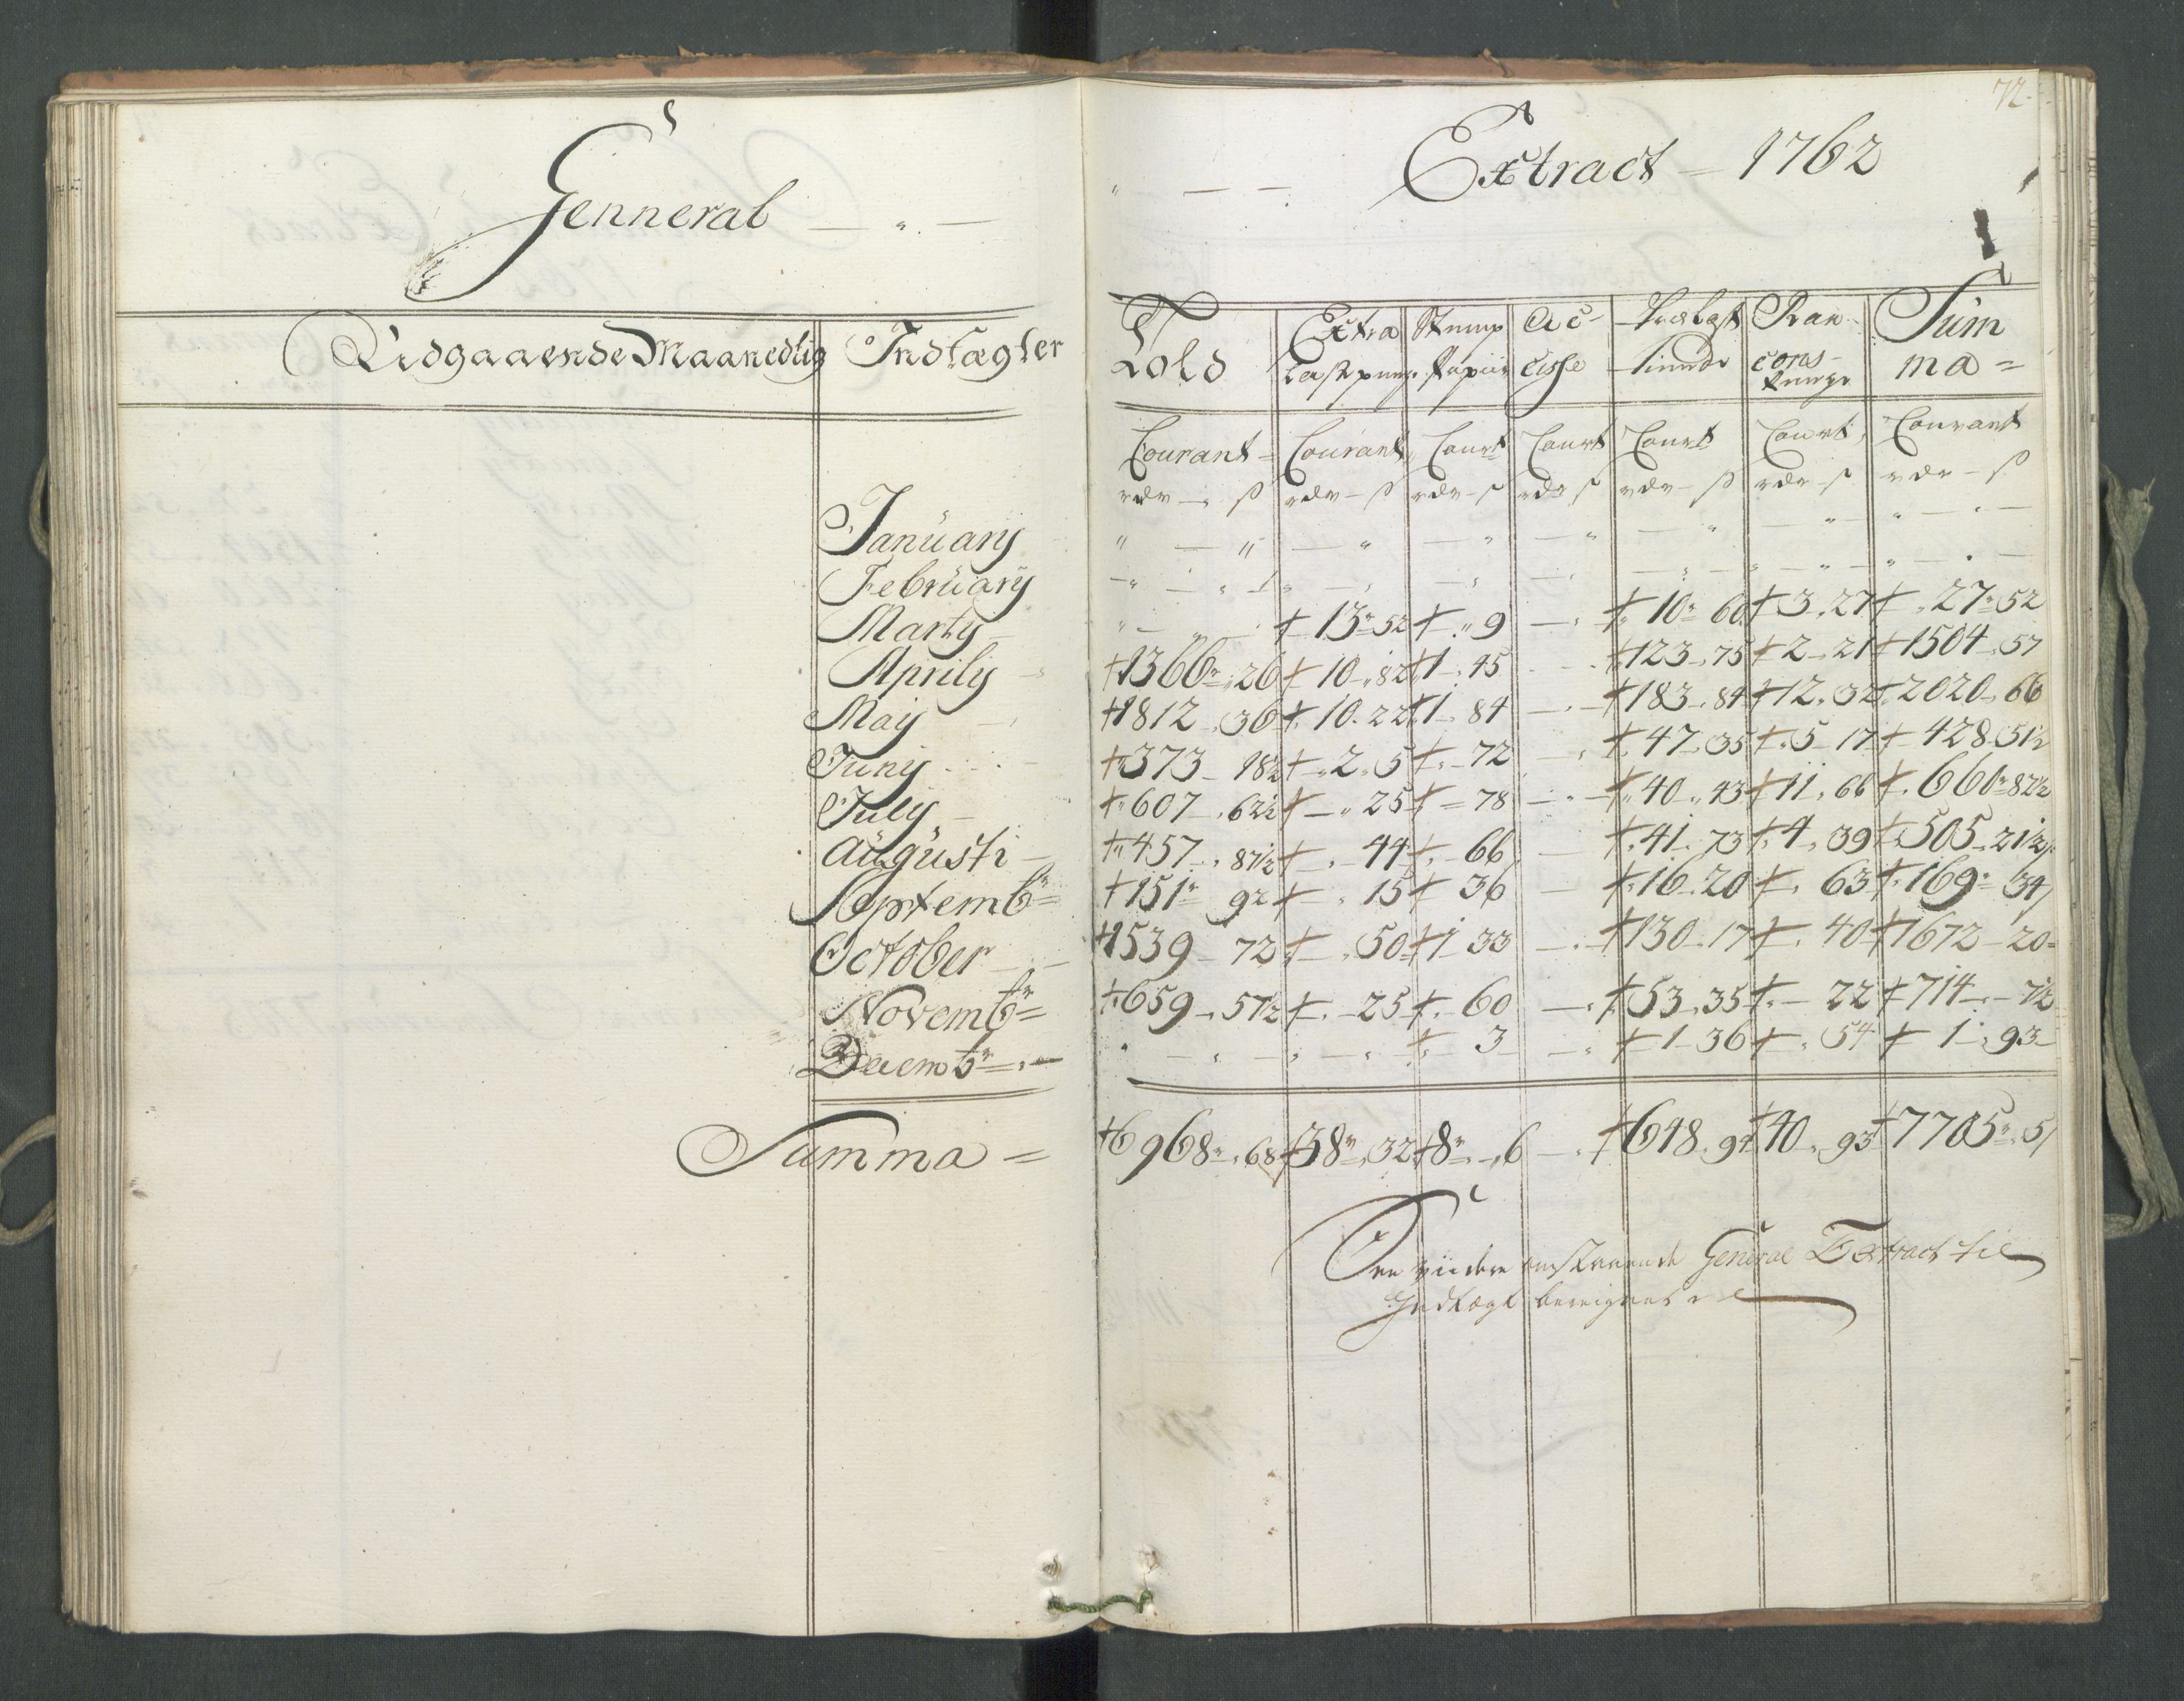 72.
Genneral — " —
" — — Extract — 1762
Udgaaende Maanedlig Indtægter
Told | Extra | Stemp | Ac- | Trælast | Ran- | Sum
Læstpenge | Papiir | cisse | tiende | cons- | ma =
Courant | Courant | Court | Court | Court | Court | Courant
rdr — ß | rdr — ß | rdr — ß | rdr ß | rdr — ß | rdr — ß | rdr — ß
January " — " | — " | — " | — " | — " | — " — | " — " —
February — " — " | " — " | — " | — " | — " | — " — | " — " —
Marty — " — | 13 " 52 | " 9 | — " | 10 " 60 | 3 " 27 | 27 " 52
Aprily 1366 " 26 | 10 " 82 | 1 " 45 | — | 123 " 75 | 2 " 21 | 1504 " 57
Maij 1812 " 36 | 10 " 22 | 1 " 84 | — " — | 183 " 84 | 12 " 32 | 2020 " 66
Juny 373 — 18½ | 2 " 5 | " — 72 | — " | 47 " 35 | 5 — 17 | 428 " 51½
July 607 " 62½ | — " 25 | = 78 | — " — | 40 " 43 | 11 " 66 | 660 " 82½
Augusti 457 " 87½ | " — 44 | " — 66 | — | 41 " 73 | 4 " 39 | 505 " 21½
Septembr = 151 " 92 | — " 15 | 36 | — | 16 " 20 | " 63 | 169 " 34
October — 1539 — 72 | — " 50 | 1 — 33 | — " — | 130 " 17 | " 40 | 1672 — 20 =
Novembr = 659 " 57½ | " — 25 | " — 60 | — " | 53 " 35 | " — 22 | 714 " — 7½
Decembr = " — " — " | " — " | " — 3 | — " | 1 — 36 | " 54 | 1 " 93
Summa = 6968 " 68 | 38 " 32 | 8 " — 6 | — " | 648 " 94 | 40 " 93 | 7705 " 5
General Extract til
Indtægt beregnes